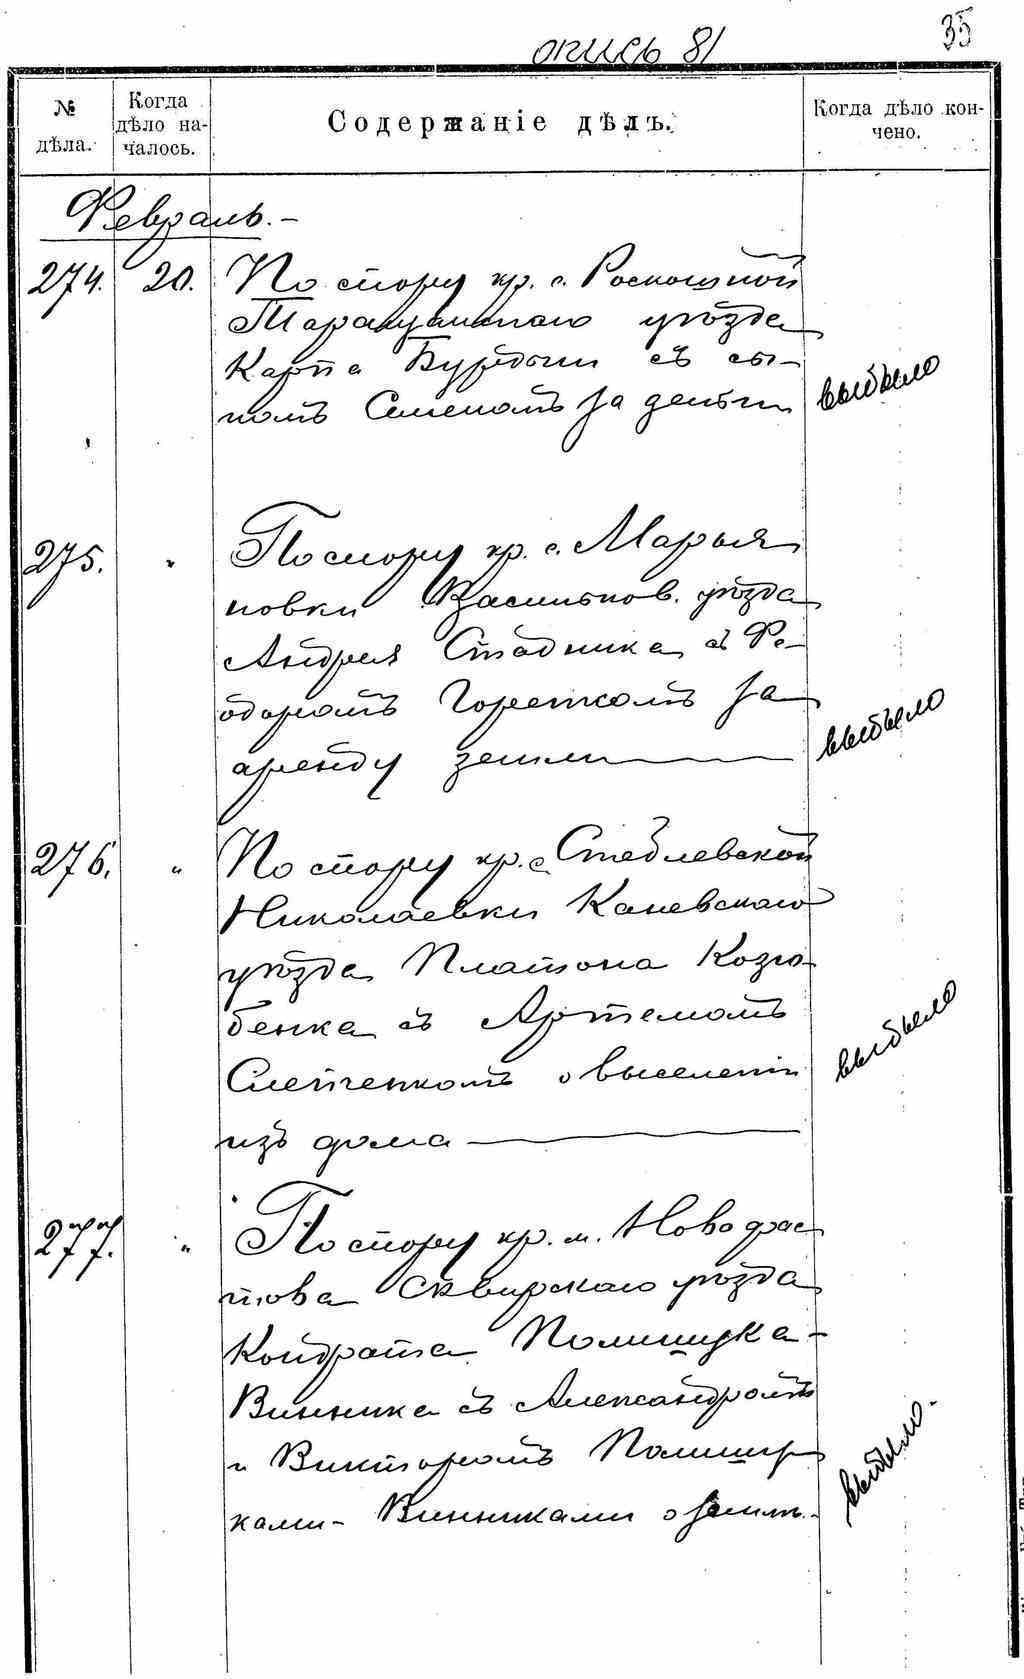 опись 81
35
№ дѣла.
Когда дѣло началось.
Содержаніе дѣлъ.
Когда дѣло кончено.
Февраль. -
274. 20. По спору кр. с. Роскошной
Таращанскаго уѣзда
Карпа Бурдыги съ сы-
номъ Семеномъ за деньги
выбыло
275. " По спору кр. с. Марья
новки Васильков. уѣзда
Андрея Стадника съ Фе-
одоромъ за
аренду земли
выбыло
276. " По спору кр. с. Стеблевской
Николаевки Каневскаго
уѣзда Платона Козю-
бенка съ Артемомъ
о выселеніи
изъ дома
выбыло
277. " По спору кр. м. Новофас
това Сквирскаго уѣзда
Кондрата Полищука-
Винника съ Александромъ
и Викторомъ Полищу
ками- Винниками о землѣ.
выбыло.